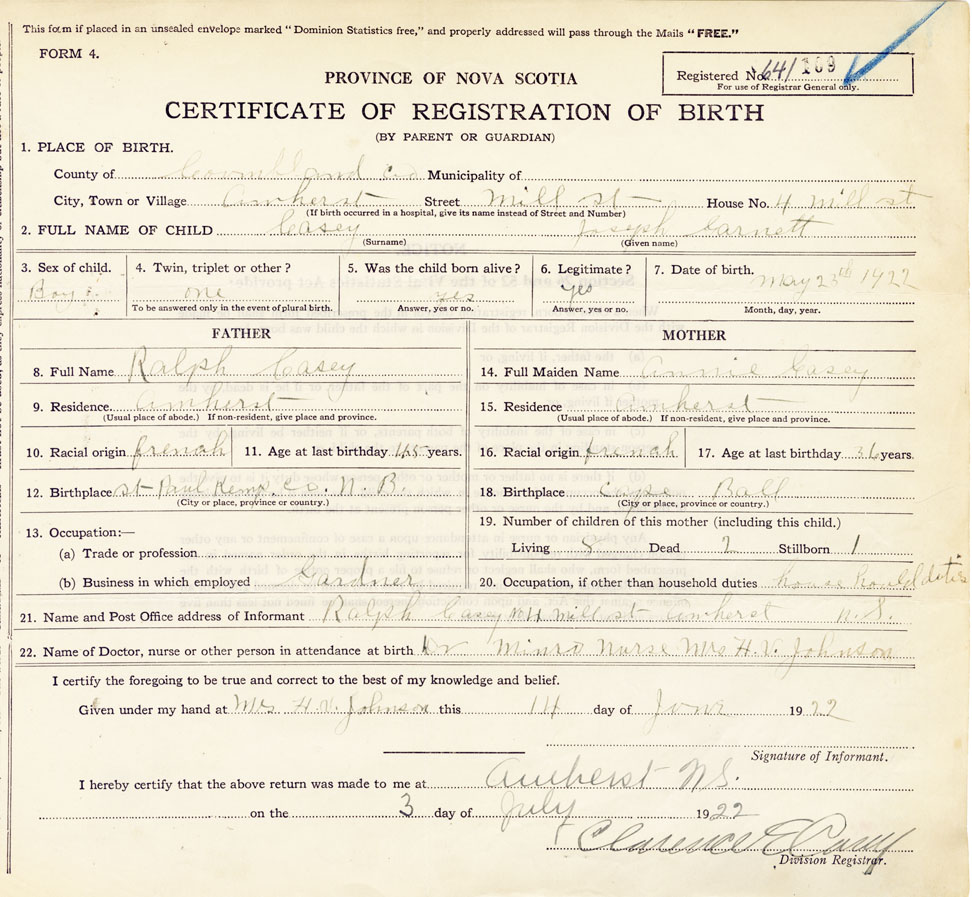 This form if placed in an unsealed envelope marked "Dominion Statistics free," and properly addressed will pass through the Mails "FREE."
FORM 4.
Registered No. 64/ 109
For use of Registrar General only.
PROVINCE OF NOVA SCOTIA
CERTIFICATE OF REGISTRATION OF BIRTH
(BY PARENT OR GUARDIAN)
1. PLACE OF BIRTH.
County of Municipality of
City, Town or Village Amherst Street Mill st House No. 4 mill st
(If birth occurred in a hospital, give its name instead of Street and Number)
2. FULL NAME OF CHILD Casey Joseph Garnett
(Surname) (Given name)
3. Sex of child. 4. Twin, triplet or other? 5. Was the child born alive? 6. Legitimate? 7. Date of birth.
Boy one yes yes May 23th 1922
To be answered only in the event of plural birth. Answer, yes or no. Answer, yes or no. Month, day, year.
FATHER MOTHER
8. Full Name Ralph Casey 14. Full Maiden Name Annie Casey
9. Residence. Amherst 15. Residence Amherst
(Usual place of abode.) If non-resident, give place and province. (Usual place of abode.) If non-resident, give place and province.
10. Racial origin frenah 11. Age at last birthday 45 years. 16. Racial origin frenah 17. Age at last birthday 36 years.
12. Birthplace st Paul Kemp. Co. N. B. 18. Birthplace Cape Ball
(City or place, province or country.) (City or place, province or country.)
13. Occupation:— 19. Number of children of this mother (including this child.)
(a) Trade or profession Living 8 Dead 2 Stillborn 1
(b) Business in which employed Gardner 20. Occupation, if other than household duties house hould duties
21. Name and Post Office address of Informant Ralph Casey No 4 mill st amherst n. S.
22. Name of Doctor, nurse or other person in attendance at birth Dr Minro Nurse Mrs H. V. Johnson
I certify the foregoing to be true and correct to the best of my knowledge and belief.
Given under my hand at Mrs H. V. Johnson this 14 day of June 1922
Signature of Informant.
I hereby certify that the above return was made to me at Amherst N.S.
on the 3 day of July 1922
Clarence E Casey
Division Registrar.